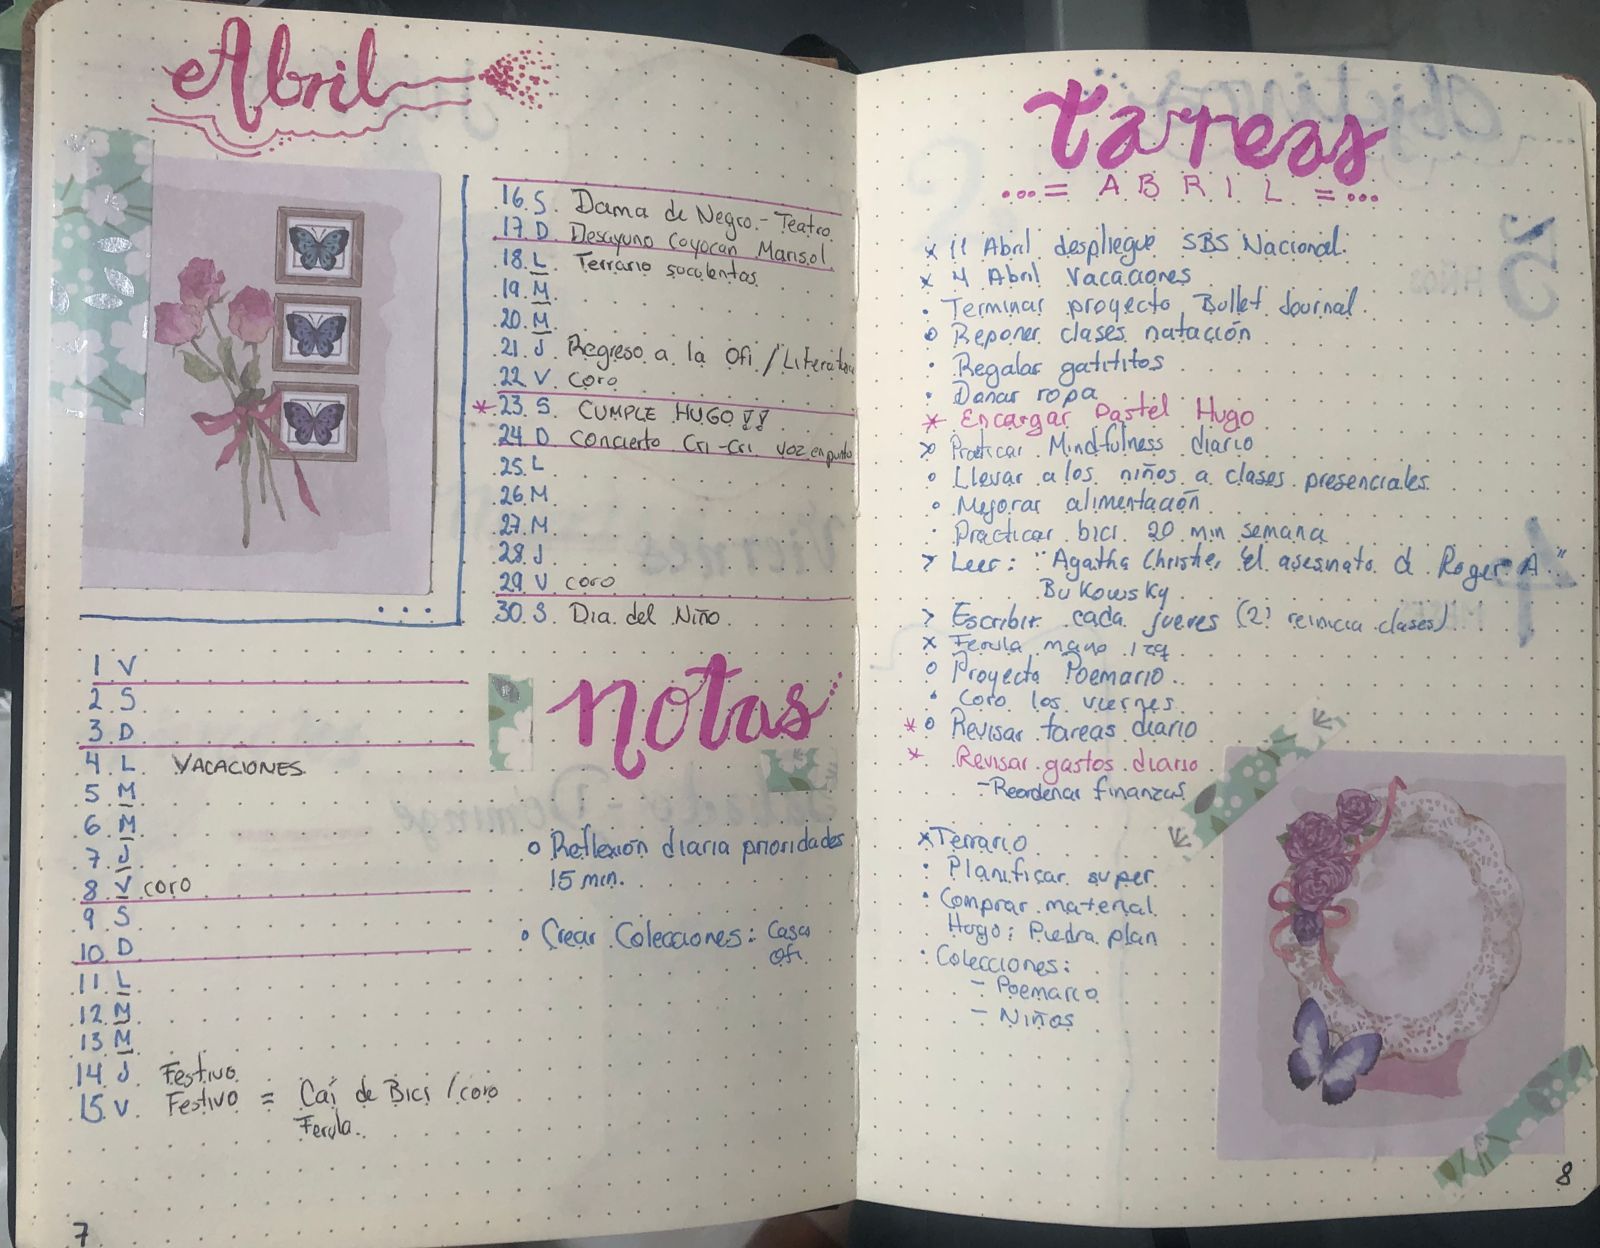 Abril
16. S. Dama de Negro - Teatro
17. D Desayuno Coyocan Marisol
18. L Terrario suculentas
19. M
20. M
21. J Regreso a la Ofi / Literatura
22. V. coro
* 23. S CUMPLE HUGO!!
24 D Concierto Cri-Cri voz en punto
25. L
26. M
27. M
28. J
29. V coro
30. S Dia del Niño
1 V
2 S
3 D
4 L VACACIONES
5 M
6 M
7 J
8 V coro
9 S
10 D
11 L
12 M
13 M
14 J Festivo
15 V Festivo = Caí de Bici / coro
Ferula
notas
o Reflexion diaria prioridades
15 min.
o Crear Colecciones: Casa
Ofi
7
tareas
...= ABRIL =...
x 11 Abril despliegue SBS Nacional.
x 4 Abril Vacaciones
· Terminar proyecto Bullet Journal
o Reponer clases natación
· Regalar gatititos
· Donar ropa
* Encargar Pastel Hugo
> Practicar Mindfulness diario
o Llevar a los niños a clases presenciales
o Mejorar alimentación
· Practicar bici 20 min semana
> Leer: "Agatha Christie, El asesinato d Roger A"
Bukowsky
> Escribir cada jueves (21 reinicia clases)
x Ferula mano izq
o Proyecto Poemario
· Coro los viernes
* o Revisar tareas diario
* Revisar gastos diario
- Reordenar finanzas
x Terrario
· Planificar super
· Comprar material
Hugo: Piedra plan
· Colecciones:
- Poemario
- Niños
8